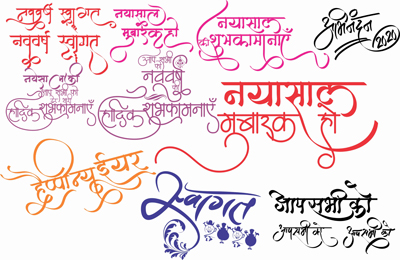 नववर्ष स्वागत
नववर्ष स्वागत
नयासाल
मुबारक हो
नयासाल
की शुभकामानाएँ
अभिनंदन
2020
नयासाल की
हार्दिक शुभकामनाएँ
आप सभी को
नववर्ष
की
हार्दिक शुभकामनाएँ
नयासाल
मुबारक हो
हैप्पी न्यू ईयर
स्वागत
आप सभी को
आप सभी को
आप सभी को